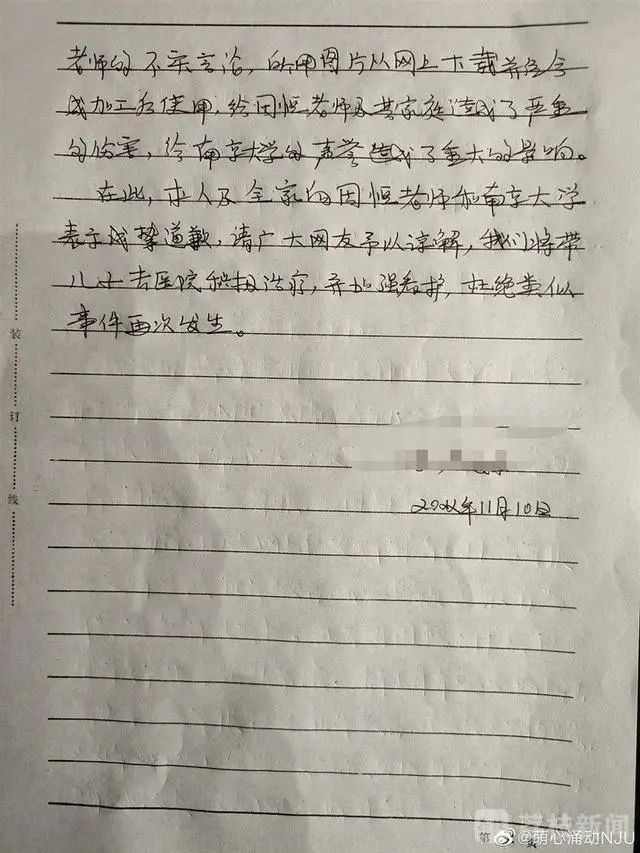 老师的不实言论，所用图片从网上下载并经合
成加工后使用，给因恒老师及其家庭造成了严重
的伤害，给南京大学的声誉造成了重大的影响。
在此，本人及全家向因恒老师和南京大学
表示诚挚道歉，请广大网友予以谅解，我们将带
儿子去医院积极治疗，并加强看护，杜绝类似
事件再次发生。
装
订
线
11月10日
第
@萌心涌动NJU